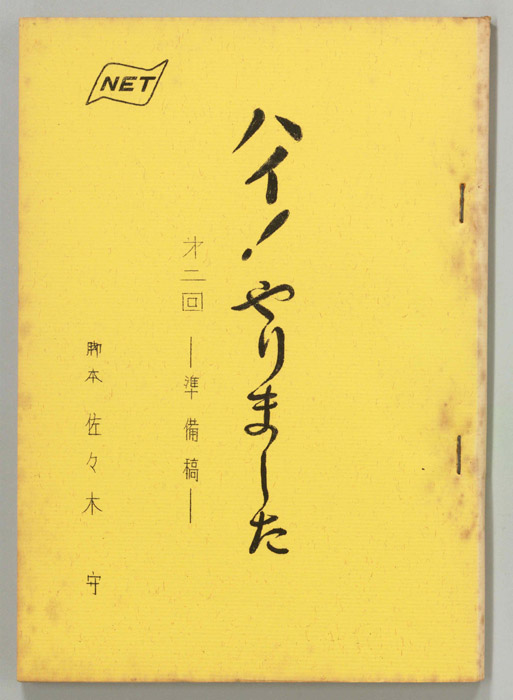 NET
ハイ!やりました
第二回 ―準備稿―
脚本 佐々木 守